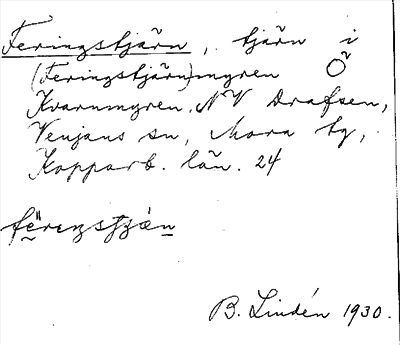 Feringstjärn, tjärn i
(Feringstjärn)myren Ö
Kvarnmyren, NV Drafsen,
Venjans sn, Mora tg,
Kopparb. län. 24
B. Lindén 1930.